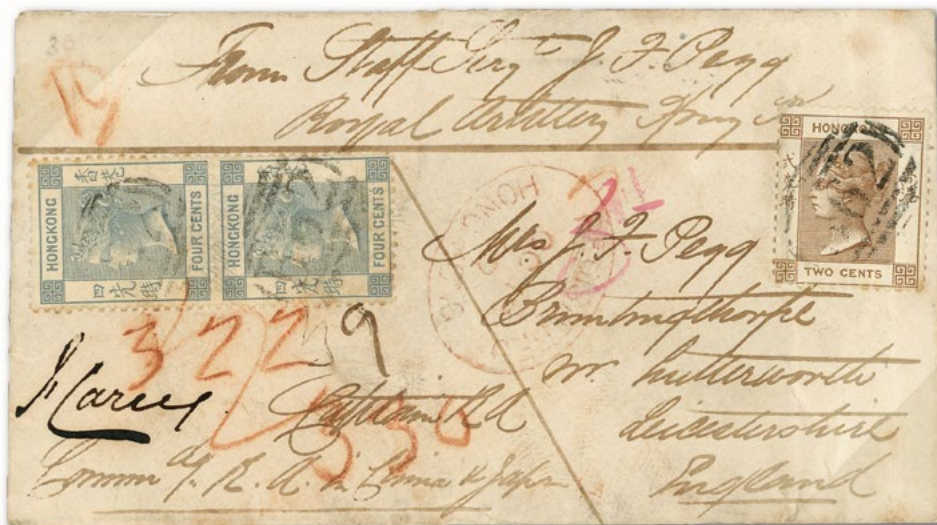 From Staff Serg J. F. Pegg
Royal Artillery Hong
香港
HONGKONG
FOUR CENTS
四先時
HONGKONG
FOUR CENTS
四先時
HONGKONG
TWO CENTS
HONG
Mrs J. F. Pegg
nr. Lutterworth
Leicestershire
England
9
322
Captain R A
Comm R. A. in China & Japan